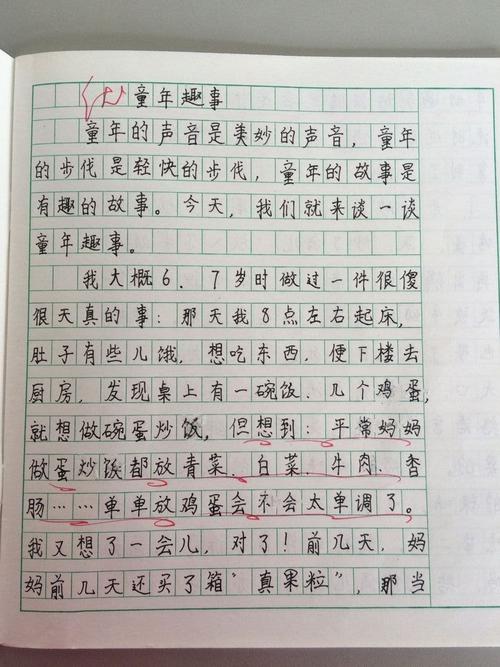 童年趣事
童年的声音是美妙的声音，童年
的步伐是轻快的步伐，童年的故事是
有趣的故事。今天，我们就来谈一谈
童年趣事。
我大概6、7岁时做过一件很傻
很天真的事：那天我8点左右起床，
肚子有些儿饿，想吃东西，便下楼去
厨房，发现桌上有一碗饭、几个鸡蛋，
就想做碗蛋炒饭，但想到：平常妈妈
做蛋炒饭都放青菜、白菜、牛肉、香
肠……单单放鸡蛋会不会太单调了。
我又想了一会儿，对了！前几天，妈
妈前几天还买了箱“真果粒”，那当